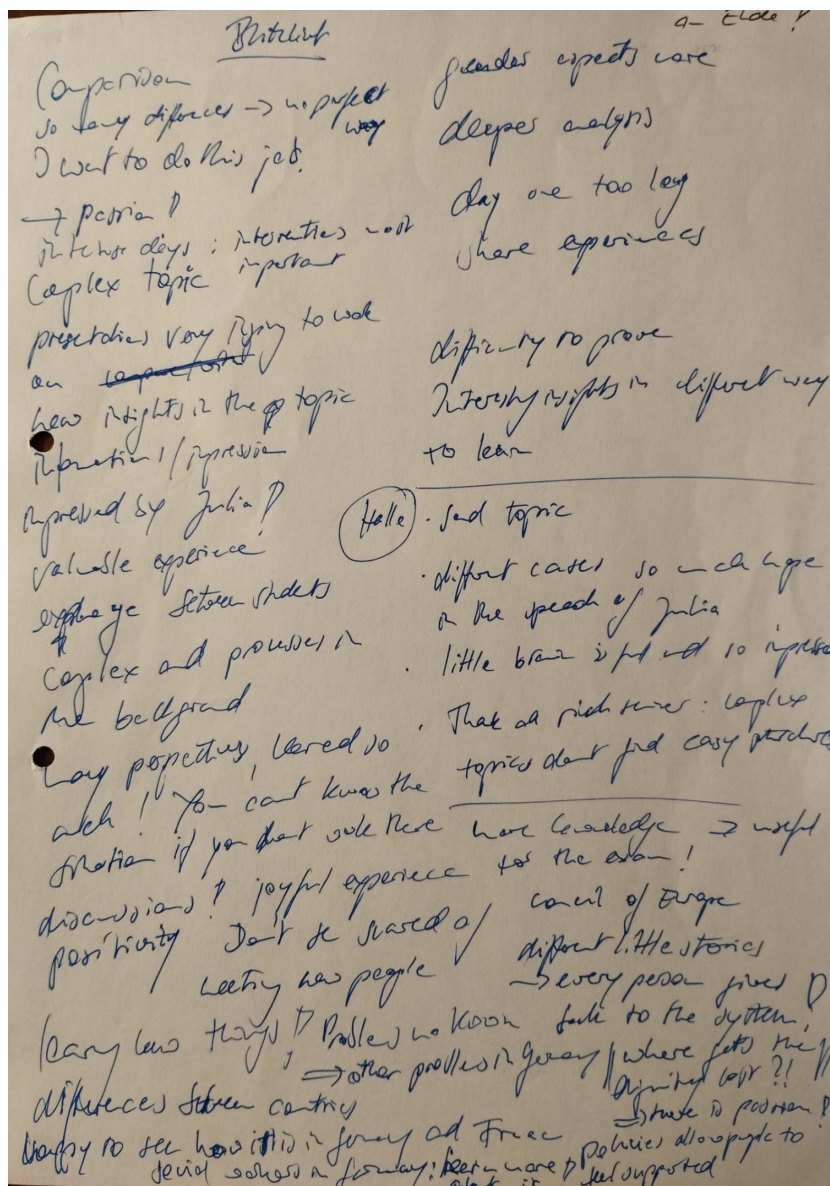 Blitzlicht
Comparison
so many differences → no perfect way
I want to do this job.
→ passion!
intense days : interventions most important
Complex topic
presentations very trying to work
on
new insights in the topic
informations / impression
impressed by Julia!
valuable experience
exchange between students
complex and processes in
the background
many perspectives, learned so
much! You cant know the
situation if you dont work there
discussions! joyful experience
positivity Don't be scared of
meeting new people
learny new things!
differences between contries
happy to see how this is in Germany ad
social workers in Germany: learn more!
gender aspects more
deeper analysis
day one too long
share experiences
difficulty to prove
Interesting insights in different way
to learn
Halle · sad topic
· different cases so much hope
in the speech of Julia
· little brain is full and so impressed
· complex
topics dont find easy
more knowledge → useful
for the exam!
Council of Europe
different little stories
→ every person gives
back to the system!
Problems no Room
⇒ other problems in Germany
where gets the
Dignity lost ?!
⇒ there is passion!
policies allow people to
feel supported